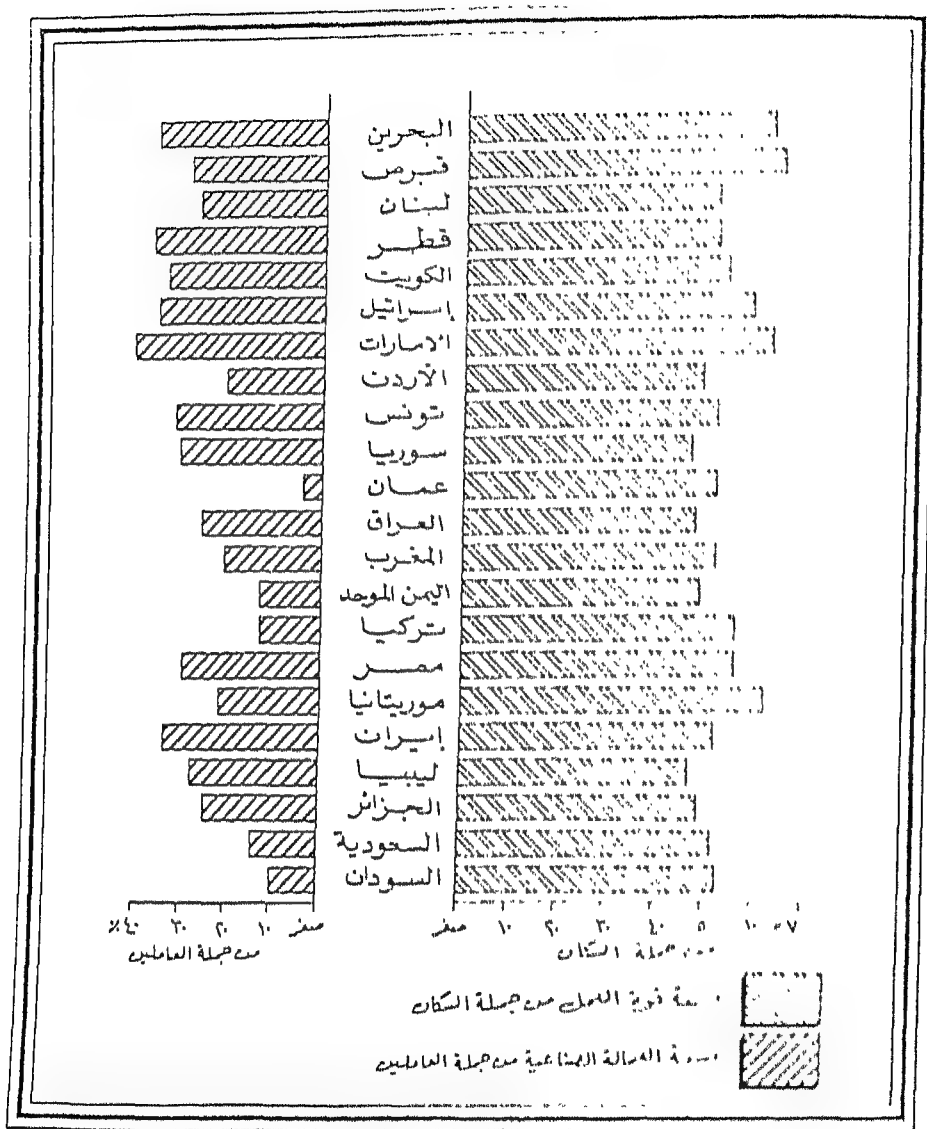 البحرين
قبرص
لبنان
قطر
الكويت
إسرائيل
الامارات
الأردن
تونس
سوريا
عمان
العراق
المغرب
اليمن الموحد
تركيا
مصر
موريتانيا
إيران
ليبيا
الجزائر
السعودية
السودان
صفر ١٠ ٢٠ ٣٠ ٤٠
٤٠٪ ٣٠ ٢٠ ١٠ صفر
من جملة السكان
من جملة العاملين
قوة العمل من جملة السكان
العمالة الصناعية من جملة العاملين